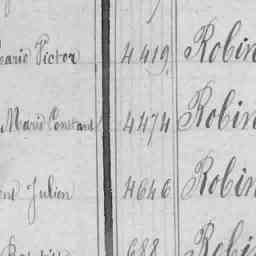 Marie Victor 4419 Robin
Marie Constant 4474 Robin
Julien 4646 Robin
688 Robin